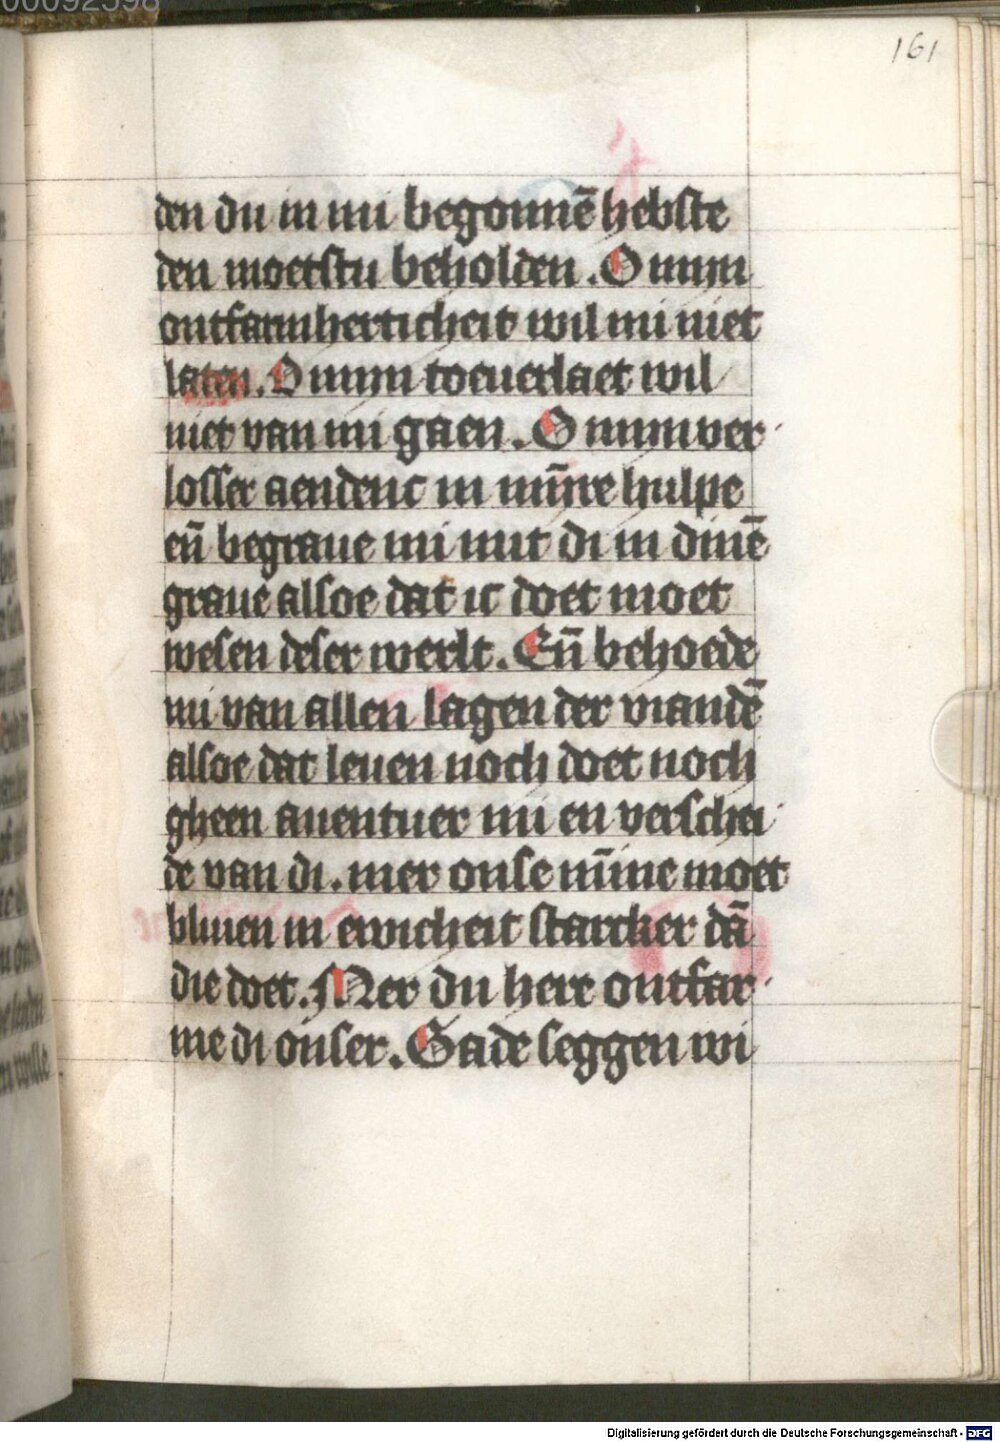 161
den du in mi begonnē hebste
den moetstu beholden. O mijn
ontfarmherticheit wil mi niet
laten. O mijn toeuerlaet wil
niet van mi gaen. O mijn ver
losser aendenc in mijnre hulpe
eñ begraue mi mit di in dinē
graue alsoe dat ic doet moet
wesen deser werlt. Eñ behoede
mi van allen lagen der viandē
alsoe dat leuen noch doet noch
gheen auentuer mi en verschei
de van di. mer onse mīne moet
bliuen in ewicheit starcker dā
die doet. Mer du here ontfar
me di onser. Gade seggen wi
Digitalisierung gefördert durch die Deutsche Forschungsgemeinschaft - DFG